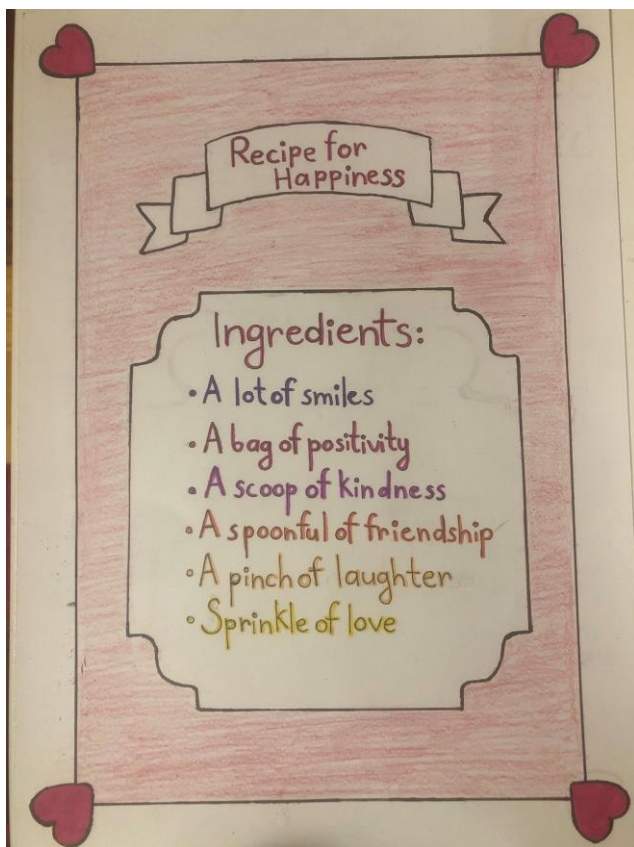 Recipe for
Happiness
Ingredients:
• A lot of smiles
• A bag of positivity
• A scoop of kindness
• A spoonful of friendship
• A pinch of laughter
• Sprinkle of love